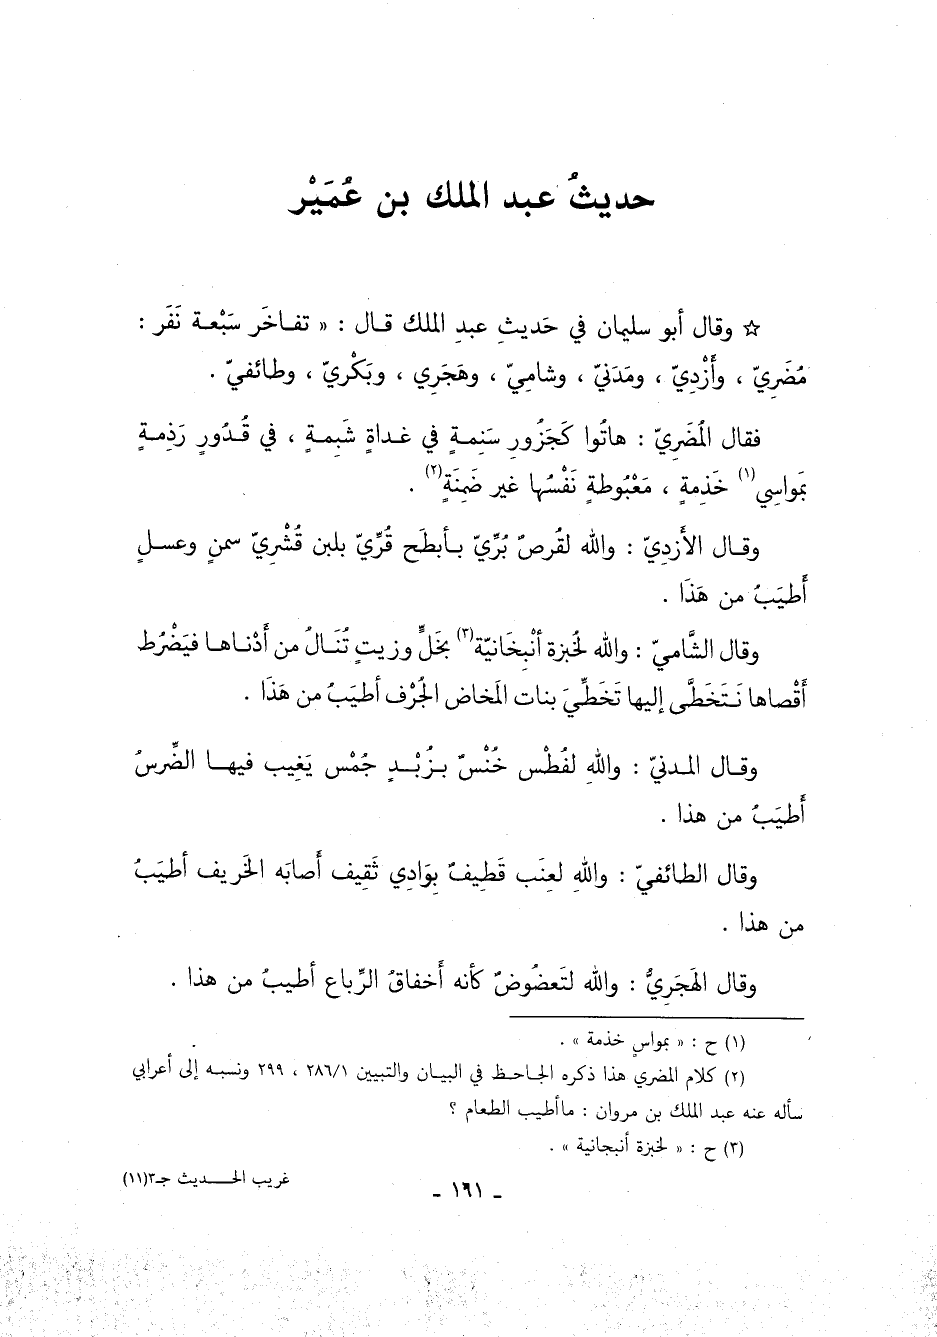 حديثُ عبد الملك بن عُمَيْر
☆ وقال أبو سليمان في حَديثِ عبدِ الملك قال : « تفاخَر سَبْعة نَفَر :
مُضَرِيّ ، وأَزْدِيّ ، ومَدَنيّ ، وشامِيّ ، وهَجَرِي ، وبَكْرِيّ ، وطائفيّ .
فقال المُضَرِيّ : هاتُوا كَجَزُورٍ سَنِمةٍ في غداةٍ شَبِمةٍ ، في قُدُورٍ رَذِمةٍ
بمَواسِي(١) خَذِمةٍ ، مَعْبُوطةٍ نَفْسُها غير ضَمِنَةٍ(٢) .
وقال الأَزدِيّ : والله لقُرصٌ بُرِّيّ بأبطَح قُرِّيّ بلبن قُشْرِيّ سمنٍ وعسلٍ
أَطيَبُ من هَذَا .
وقال الشَّاميّ : والله لخُبزة أنْبِخَانيّة(٣) بخَلٍّ وزيتٍ تُنَالُ من أَدْناها فيَضْرُط
أَقْصاها نَتَخَطَّى إليها تَخَطِّيَ بنات المَخاض الجُرْف أطيَبُ من هَذَا .
وقال المدنيّ : واللهِ لفُطْس خُنْسٌ بزُبْدٍ جُمْس يَغِيب فيها الضِّرسُ
أَطيَبُ من هذا .
وقال الطائفيّ : واللهِ لعِنَب قَطِيفٌ بِوَادِي ثَقِيف أصابَه الخَريف أطيَبُ
من هذا .
وقال الهَجَرِيُّ : والله لتَعضُوضٌ كأنه أَخفاقُ الرِّباع أطيبُ من هذا .
(١) ح : « بمواسٍ خذمة » .
(٢) كلام المضري هذا ذكره الجاحظ في البيان والتبيين ٢٨٦/١ ، ٢٩٩ ونسبه إلى أعرابي
سأله عنه عبد الملك بن مروان : ماأطيب الطعام ؟
(٣) ح : « لخبزة أنبجانية » .
غريب الحديث جـ٣(١١)
ـ ١٦١ ـ